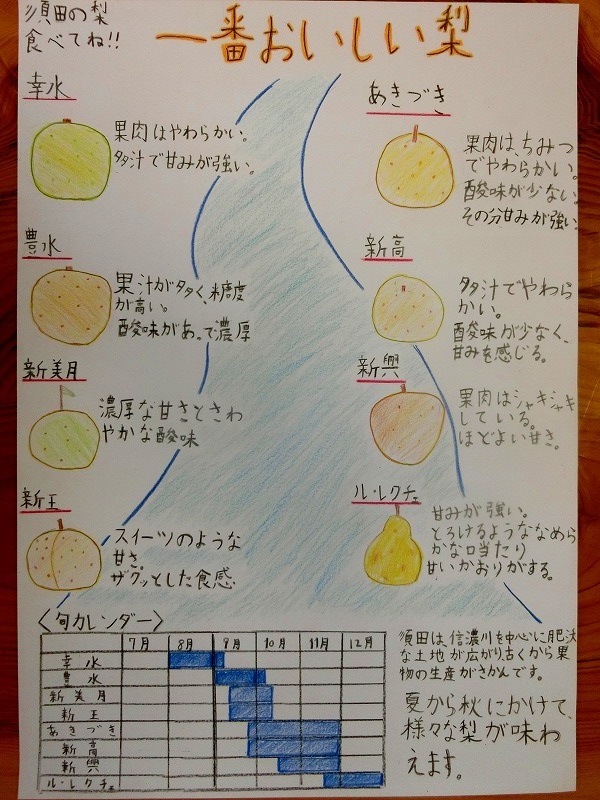 須田の梨
食べてね!!
一番おいしい梨
幸水
果肉はやわらかい。
多汁で甘みが強い。
豊水
果汁が多く、糖度
が高い。
酸味があって濃厚
新美月
濃厚な甘さとさわ
やかな酸味
新王
スイーツのような
甘さ。
ザクッとした食感
あきづき
果肉はちみつ
でやわらかい。
酸味が少ない。
その分甘みが強い
新高
多汁でやわら
かい。
酸味が少なく、
甘みを感じる。
新興
果肉はシャキシャキ
している。
ほどよい甘さ。
ル・レクチェ
甘みが強い。
とろけるようななめら
かな口当たり
甘いかおりがする。
〈旬カレンダー〉
7月 8月 9月 10月 11月 12月
幸水
豊水
新美月
新王
あきづき
新高
新興
ル・レクチェ
須田は、信濃川を中心に肥沃
な土地が広がり古くから果
物の生産がさかんです。
夏から秋にかけて、
様々な梨が味わ
えます。